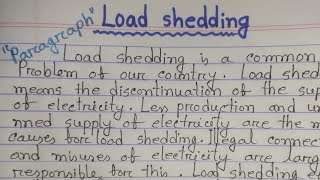 Load shedding
"Paragraph"
Load shedding is a common
Problem of our country. Load shed
means the discontinuation of the sup
of electricity. Less production and un
nned supply of electricity are the m
causes for load shedding. Illegal connec
and misuses of electricity are larg
responsible for this. Load shedding